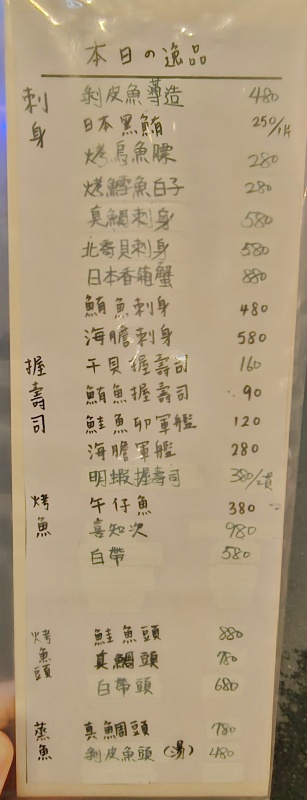 本日の逸品
刺身
剥皮魚薄造 480
日本黑鮪 250/片
烤烏魚膘 280
烤鱈魚白子 280
真鯛刺身 580
北寄貝刺身 580
日本香箱蟹 880
鮪魚刺身 480
海膽刺身 580
握壽司
干貝握壽司 160
鮪魚握壽司 90
鮭魚卵軍艦 120
海膽軍艦 280
明蝦握壽司 380/2貫
烤魚
午仔魚 380
喜知次 980
白帶 580
烤魚頭
鮭魚頭 880
真鯛頭 780
白帶頭 680
蒸魚
真鯛頭 780
剥皮魚頭(湯) 480